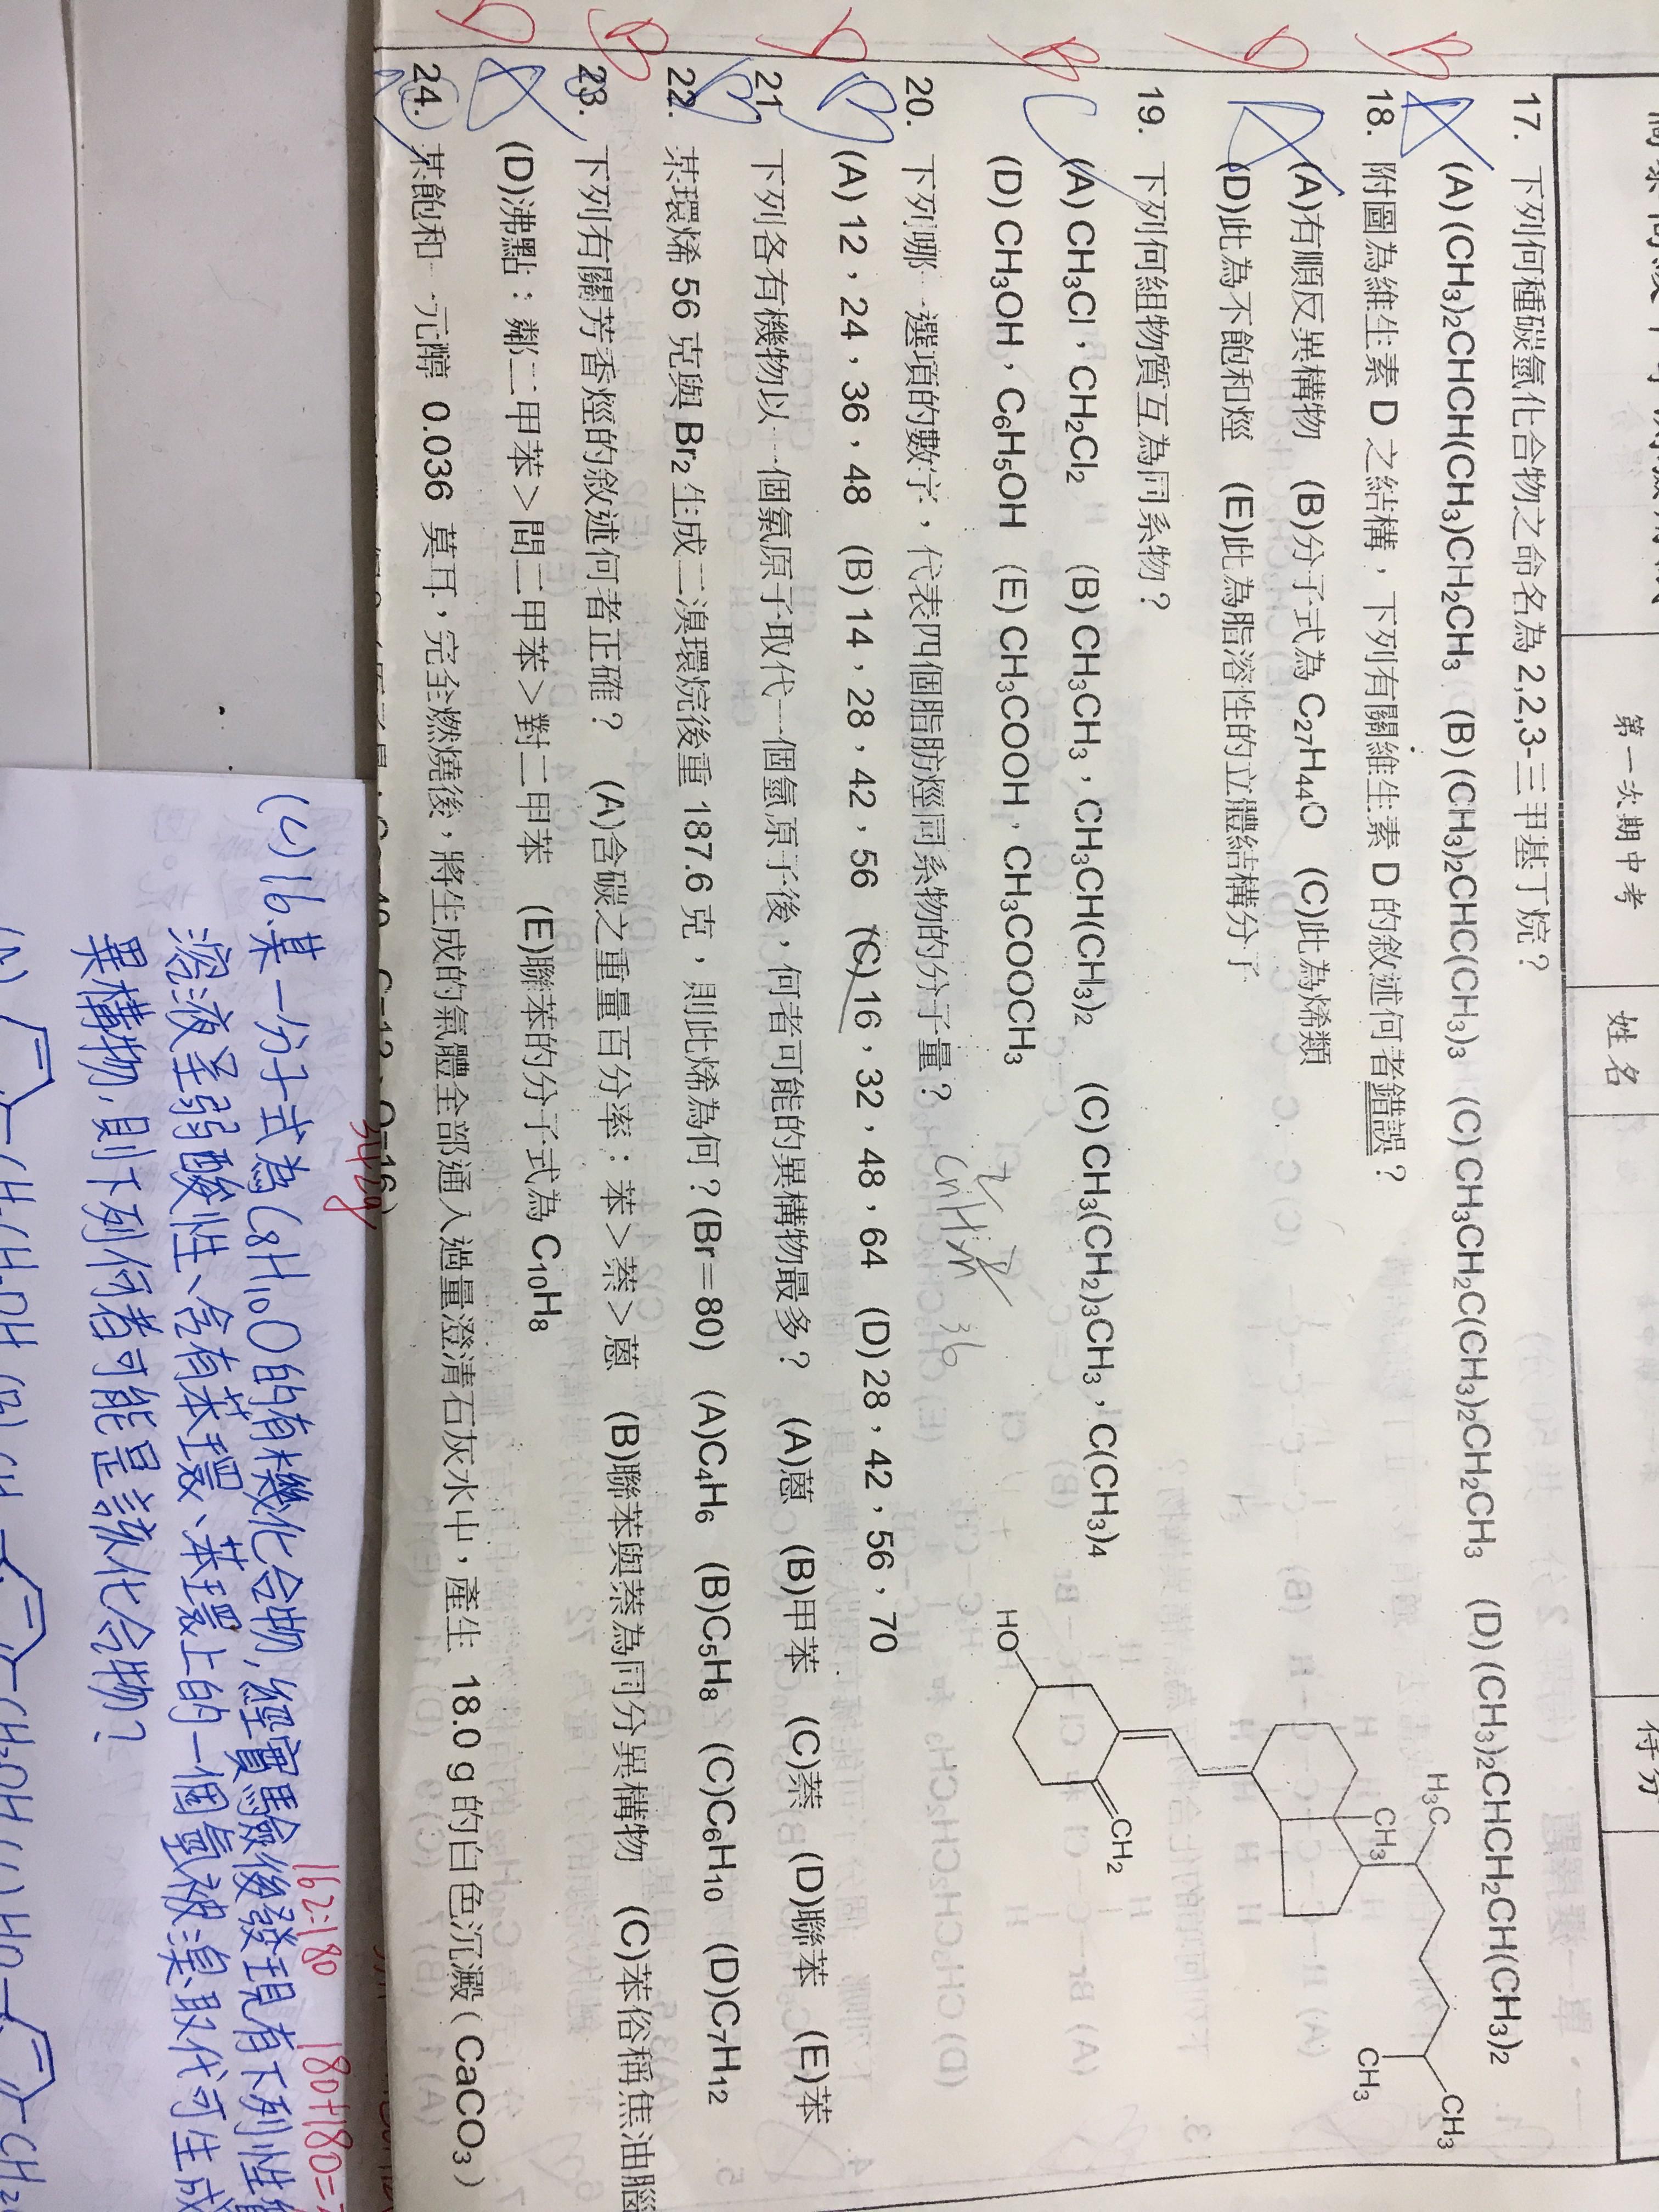 第一次期中考 姓名 得分
17. 下列何種碳氫化合物之命名為 2,2,3-三甲基丁烷？
(A) (CH3)2CHCH(CH3)CH2CH3 (B) (CH3)2CHC(CH3)3 (C) CH3CH2C(CH3)2CH2CH3 (D) (CH3)2CHCH2CH(CH3)2
18. 附圖為維生素 D 之結構，下列有關維生素 D 的敘述何者錯誤？
(A)有順反異構物 (B)分子式為 C27H44O (C)此為烯類
(D)此為不飽和烴 (E)此為脂溶性的立體結構分子
H3C
CH3
CH3
CH3
CH2
HO
19. 下列何組物質互為同系物？
(A) CH3Cl，CH2Cl2 (B) CH3CH3，CH3CH(CH3)2 (C) CH3(CH2)3CH3，C(CH3)4
(D) CH3OH，C6H5OH (E) CH3COOH，CH3COOCH3
20. 下列哪一選項的數字，代表四個脂肪烴同系物的分子量？
36
(A) 12，24，36，48 (B) 14，28，42，56 (C) 16，32，48，64 (D) 28，42，56，70
21. 下列各有機物以一個氯原子取代一個氫原子後，何者可能的異構物最多？ (A)蒽 (B)甲苯 (C)萘 (D)聯苯 (E)苯
22. 某環烯 56 克與 Br2 生成二溴環烷後重 187.6 克，則此烯為何？(Br＝80) (A)C4H6 (B)C5H8 (C)C6H10 (D)C7H12
23. 下列有關芳香烴的敘述何者正確？ (A)含碳之重量百分率：苯＞萘＞蒽 (B)聯苯與萘為同分異構物 (C)苯俗稱焦油腦
(D)沸點：鄰二甲苯＞間二甲苯＞對二甲苯 (E)聯苯的分子式為 C10H8
24. 某飽和一元醇 0.036 莫耳，完全燃燒後，將生成的氣體全部通入過量澄清石灰水中，產生 18.0 g 的白色沉澱( CaCO3 )
342g
162:180
180+180=
(C)16.某一分子式為C8H10O的有機化合物,經實驗後發現有下列性
溶液呈弱酸性、含有苯環、苯環上的一個氫被溴取代可生成
異構物,則下列何者可能是該化合物?
(A) CH2CH2OH (B) CH CH2OH (C) HO CH2